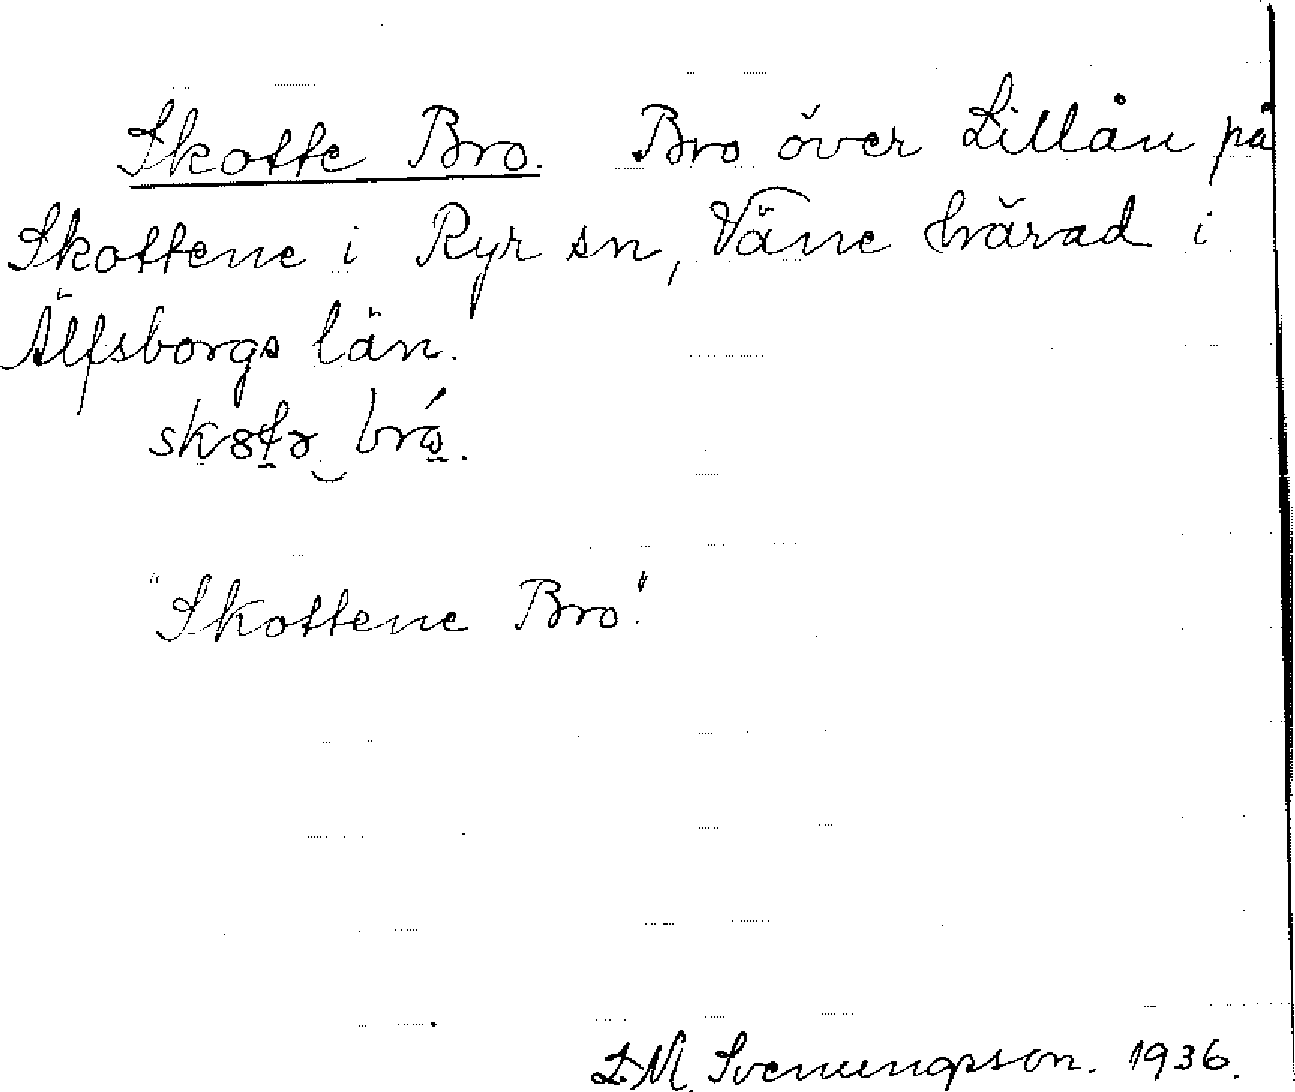 Skotte Bro. Bro över Lillån på
Skottene i Ryr sn, Väne härad i
Älfsborgs län.
"Skottene Bro."
L.M. Svenungsson. 1936.